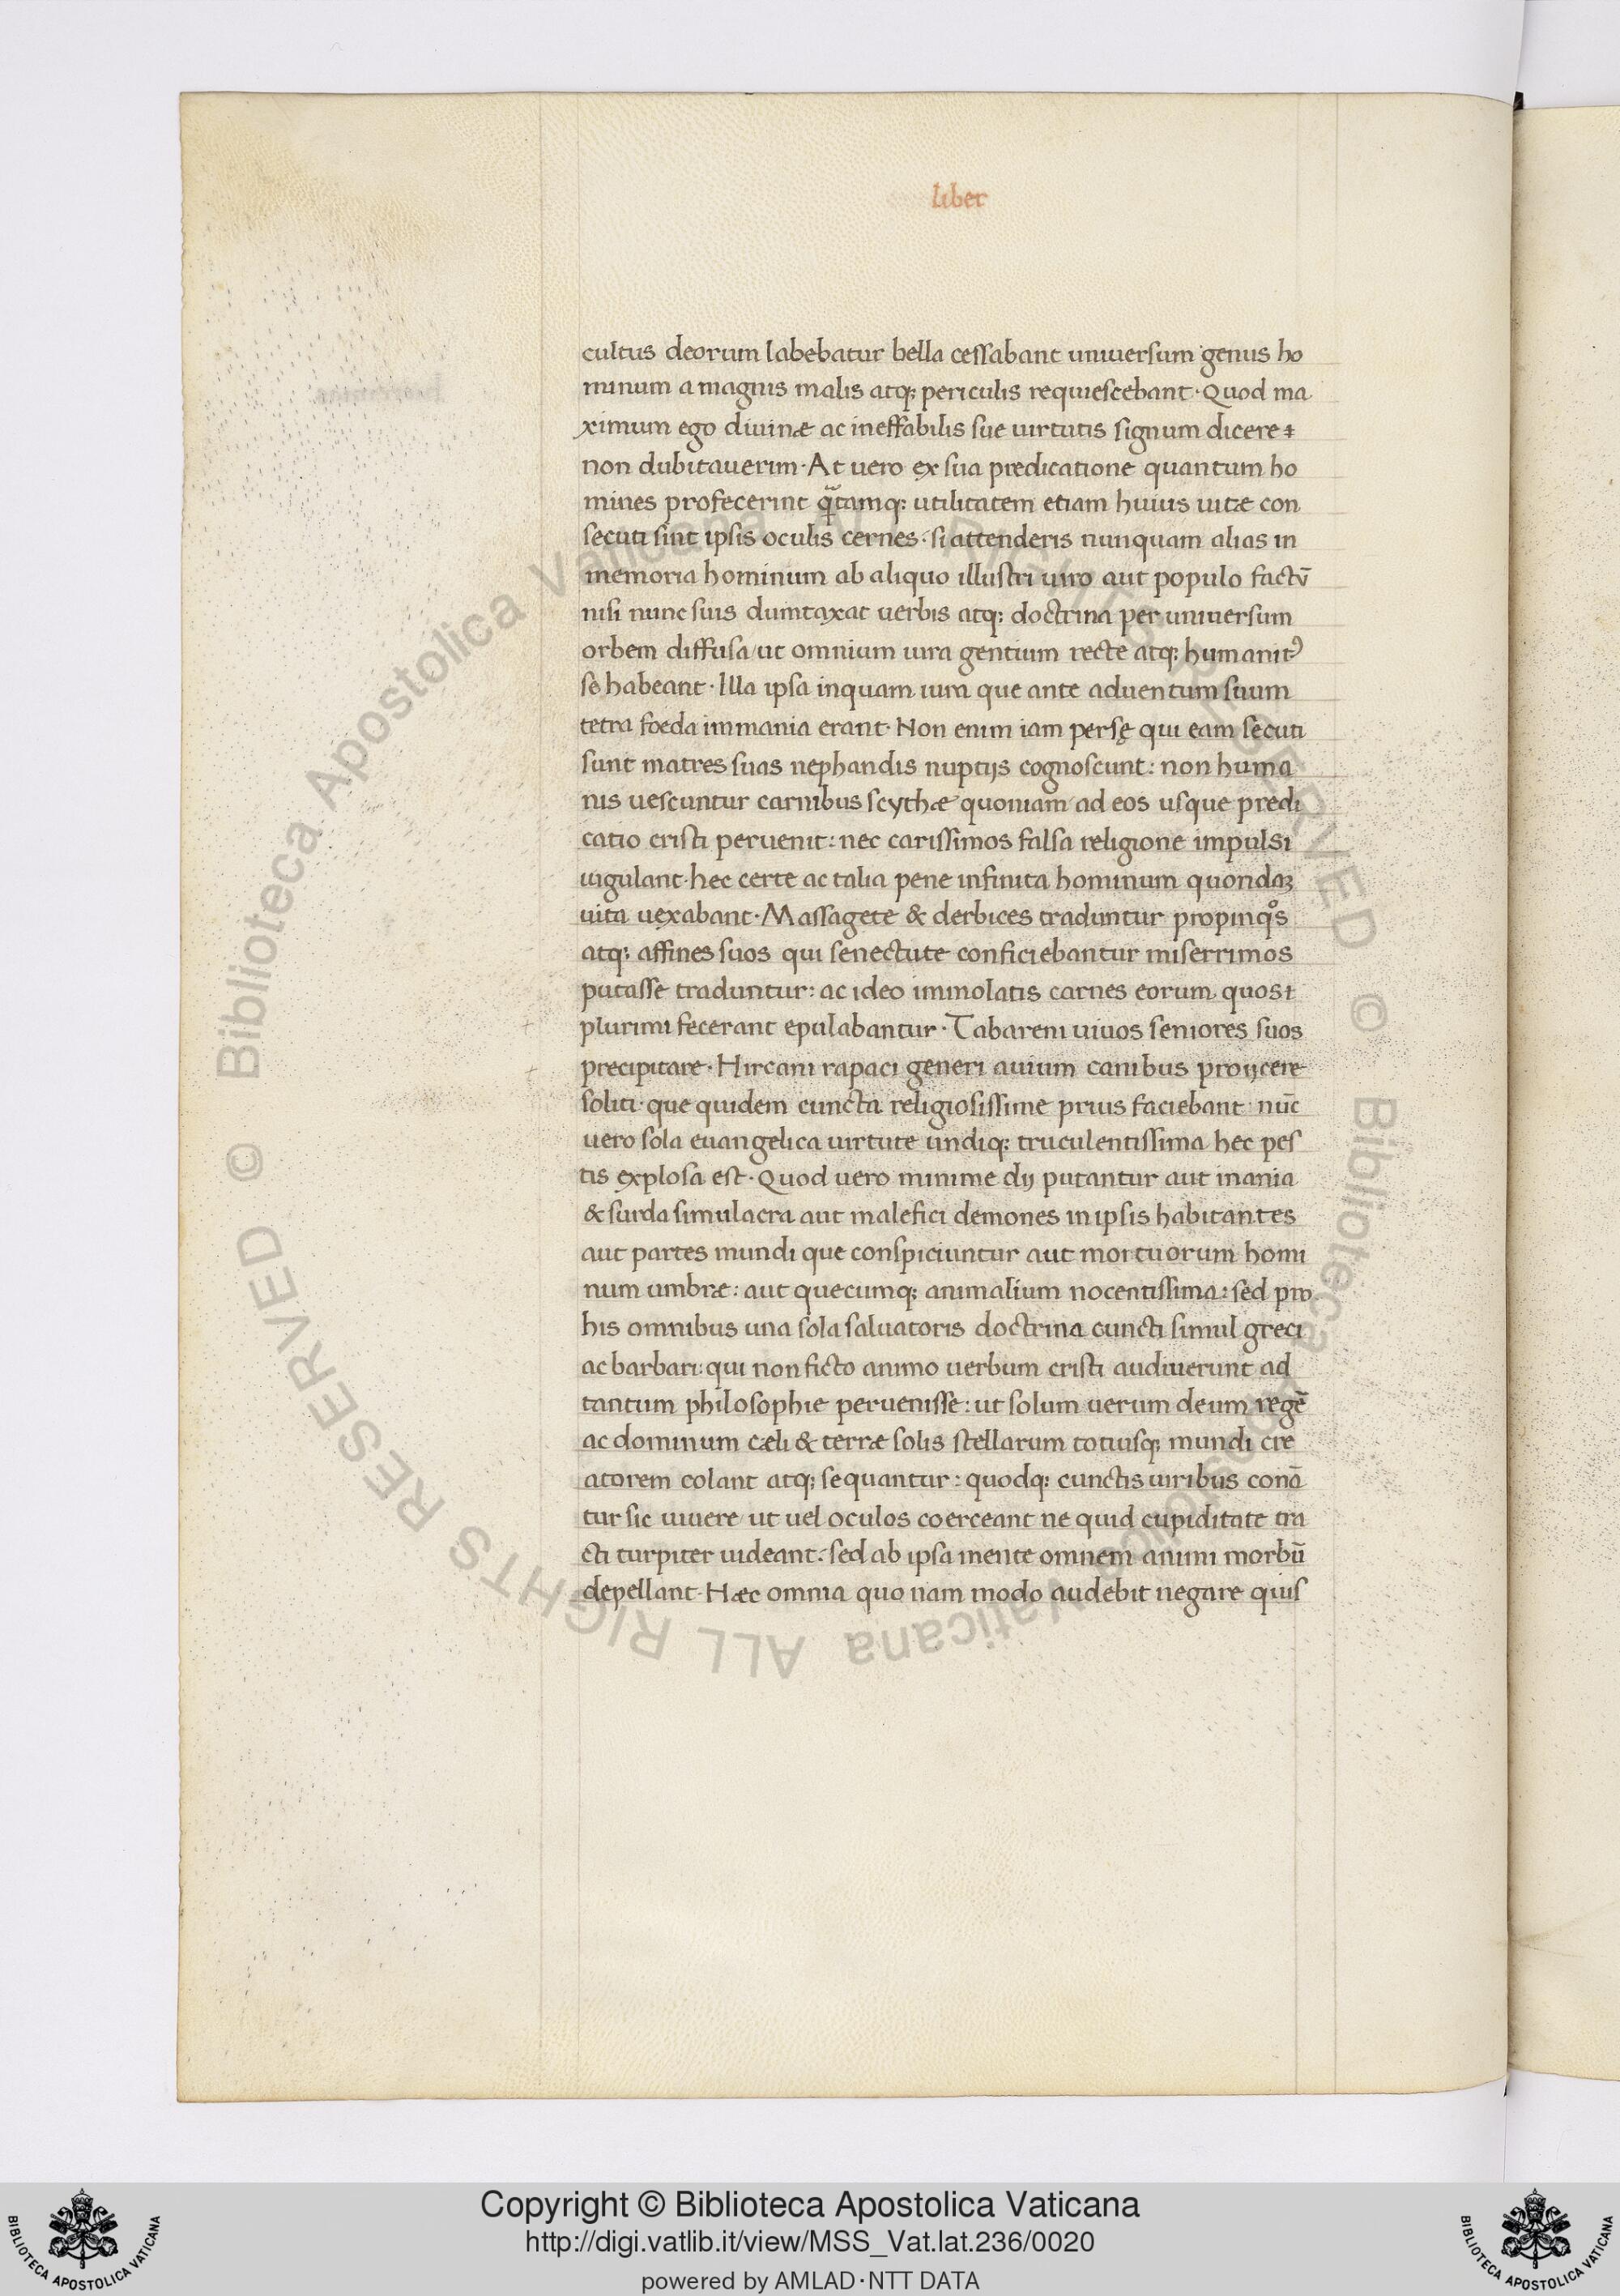 liber
cultus deorum labebatur bella cessabant uniuersum genus ho
minum a magnis malis atq; periculis requiescebant · Quod ma
ximum ego diuinæ ac ineffabilis sue uirtutis signum dicere
non dubitauerim · At uero ex sua predicatione quantum ho
mines profecerint qͣ̄tamq; utilitatem etiam huius uitæ con
secuti sint ipsis oculis cernes · si attenderis nunquam alias in
memoria hominum ab aliquo illustri uiro aut populo factū
nisi nunc suis dumtaxat uerbis atq; doctrina per uniuersum
orbem diffusa / ut omnium iura gentium recte atq; humanit᾿
se habeant · Illa ipsa inquam iura que ante aduentum suum
tetra foeda immania erant · Non enim iam persę qui eam secuti
sunt matres suas nephandis nuptijs cognoscunt : non huma
nis uescuntur carnibus scythæ quoniam ad eos usque predi
catio cristi peruenit : nec carissimos falsa religione impulsi
uigulant · hec certe ac talia pene infinita hominum quondaꝫ
uita uexabant · Massagete & derbices traduntur propinqͦs
atq; affines suos qui senectute conficiebantur miserrimos
putasse traduntur : ac ideo immolatis carnes eorum quos
plurimi fecerant epulabantur · Tabareni uiuos seniores suos
precipitare · Hircani rapaci generi auium canibus proijcere
soliti · que quidem cuncta religiosissime prius faciebant nūc
uero sola euangelica uirtute undiq; truculentissima hec pes
tis explosa est · Quod uero minime dij putantur aut inania
& surda simulacra aut malefici demones in ipsis habitantes
aut partes mundi que conspiciuntur aut mortuorum homi
num umbræ : aut quecumq; animalium nocentissima : sed pro
his omnibus una sola saluatoris doctrina cuncti simul greci
ac barbari : qui non ficto animo uerbum cristi audiuerunt ad
tantum philosophie peruenisse : ut solum uerum deum regē
ac dominum cæli & terræ solis stellarum totiusq; mundi cre
atorem colant atq; sequantur : quodq; cunctis uiribus conā
tur sic uiuere ut uel oculos coerceant ne quid cupiditate tra
cti turpiter uideant : sed ab ipsa mente omnem animi morbū
depellant · Hæc omnia quo nam modo audebit negare quis
© Biblioteca Apostolica Vaticana ALL RIGHTS RESERVED © Biblioteca Apostolica Vaticana ALL RIGHTS RESERVED
Copyright © Biblioteca Apostolica Vaticana
http://digi.vatlib.it/view/MSS_Vat.lat.236/0020
powered by AMLAD·NTT DATA
BIBLIOTECA APOSTOLICA VATICANA
BIBLIOTECA APOSTOLICA VATICANA